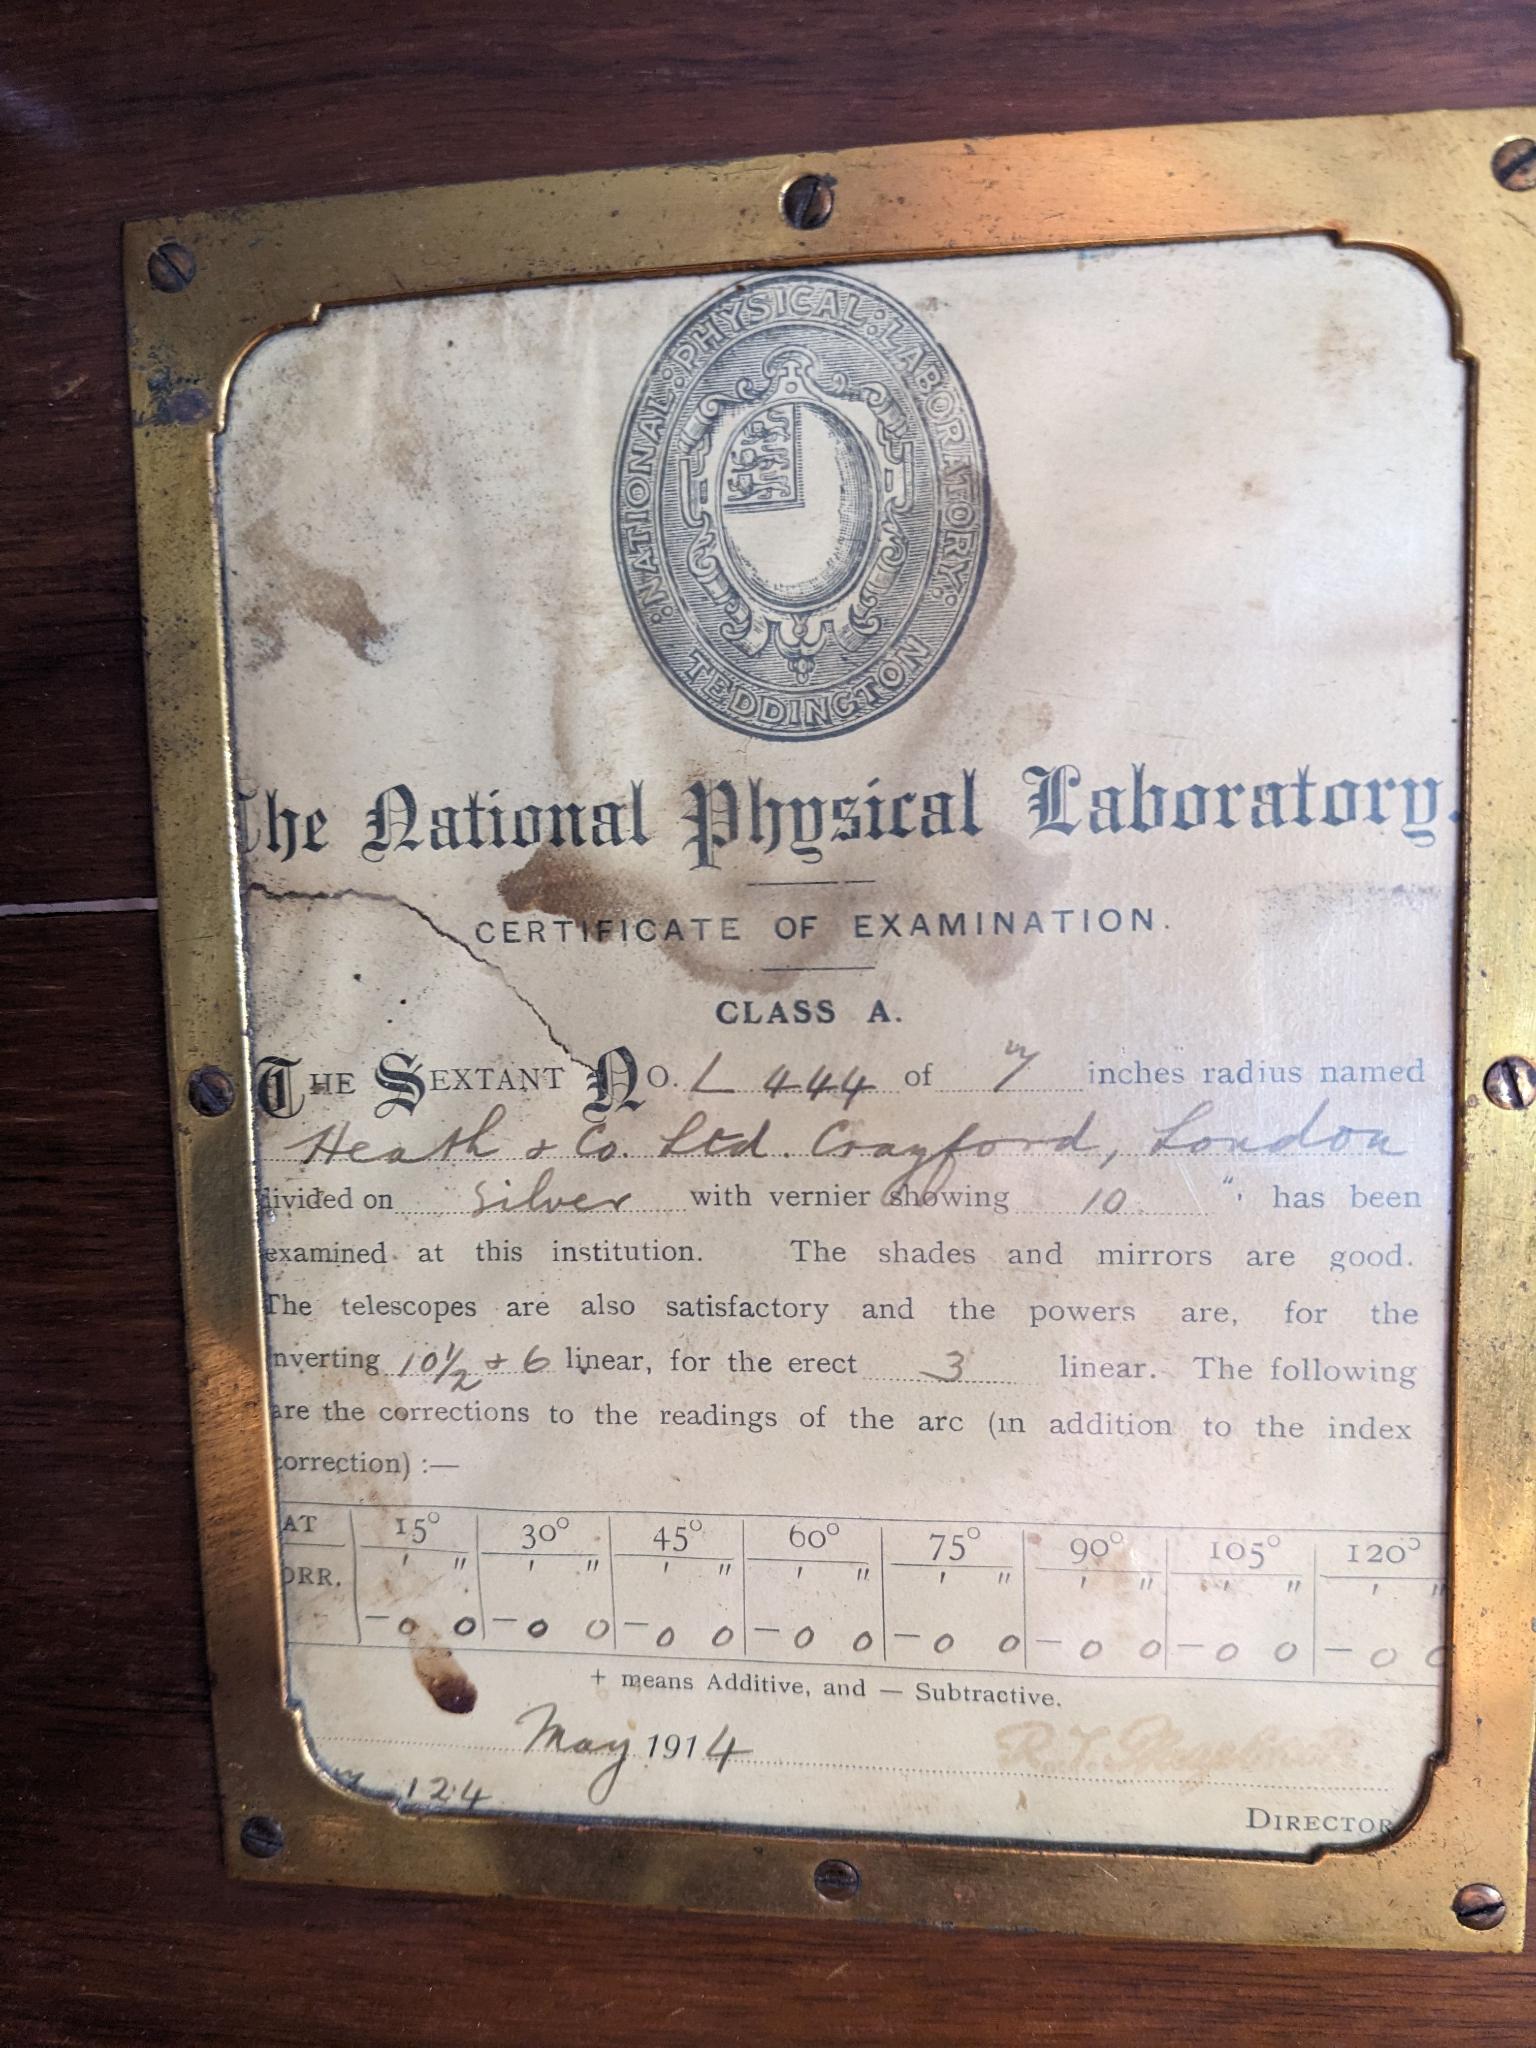 NATIONAL : PHYSICAL : LABORATORY :
TEDDINGTON
The National Physical Laboratory.
CERTIFICATE OF EXAMINATION.
CLASS A.
THE SEXTANT NO. L 444 of 7 inches radius named
Heath & Co. Ltd. Crayford, London
divided on Silver with vernier showing 10 " has been
examined at this institution. The shades and mirrors are good.
The telescopes are also satisfactory and the powers are, for the
nverting 10½ & 6 linear, for the erect 3 linear. The following
are the corrections to the readings of the arc (in addition to the index
correction) :—
AT 15° 30° 45° 60° 75° 90° 105° 120°
ORR. ' " ' " ' " ' " ' " ' " ' " ' "
–0 0 –0 0 –0 0 –0 0 –0 0 –0 0 –0 0 –0 0
+ means Additive, and — Subtractive.
May 1914
124
DIRECTOR